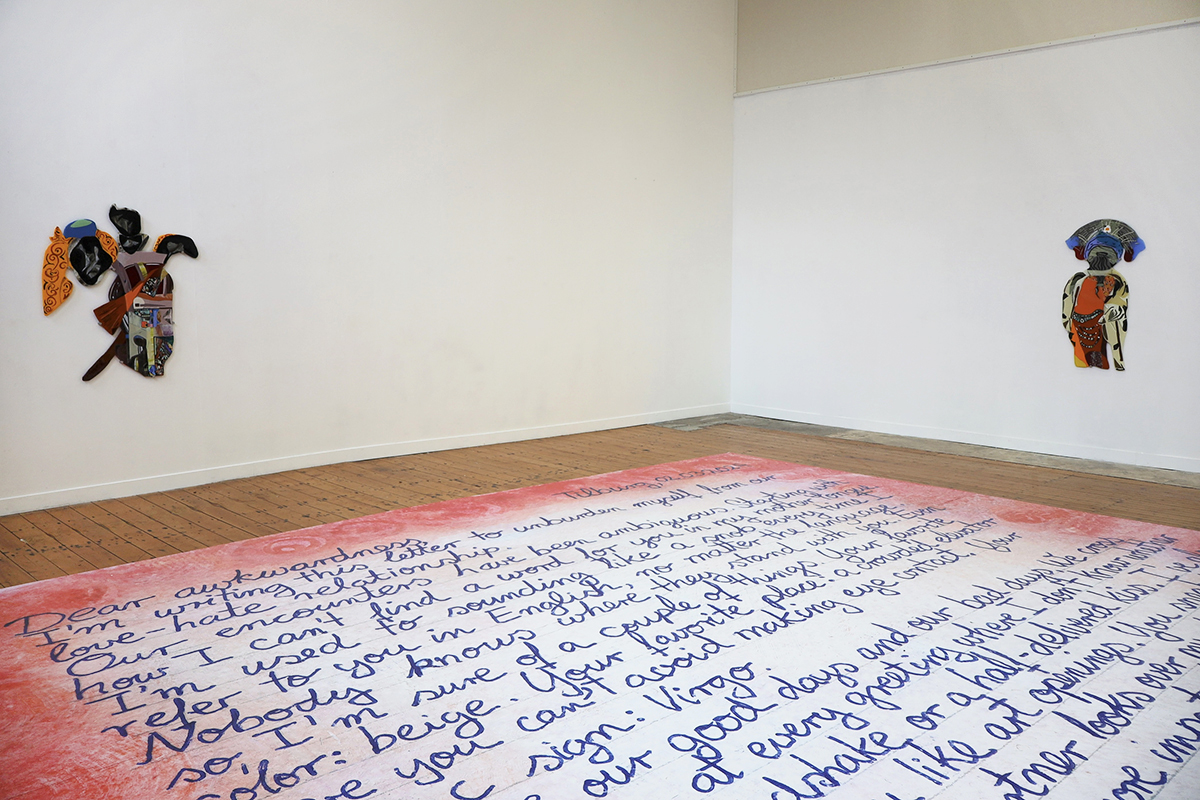 Tilburg,
Dear awkwardness,
I'm writing this letter to unburden myself from our
love-hate relationship.
Our encounters have been ambiguous. Starting with
how I can't find a word for you in my mother tongue.
I'm used to sounding like a snob everytime I
refer to you in English, no matter the language.
Nobody knows where they stand with you. Even
so, I'm sure of a couple of things. Your favorite
color: beige. Your favorite place: a crowded elevator
you can't avoid making eye contact. Your
sign: Virgo.
our good days and our bad days. We cross
at every greeting where I don't know whether
or a half-delivered kiss. I
like art openings. You
looks over